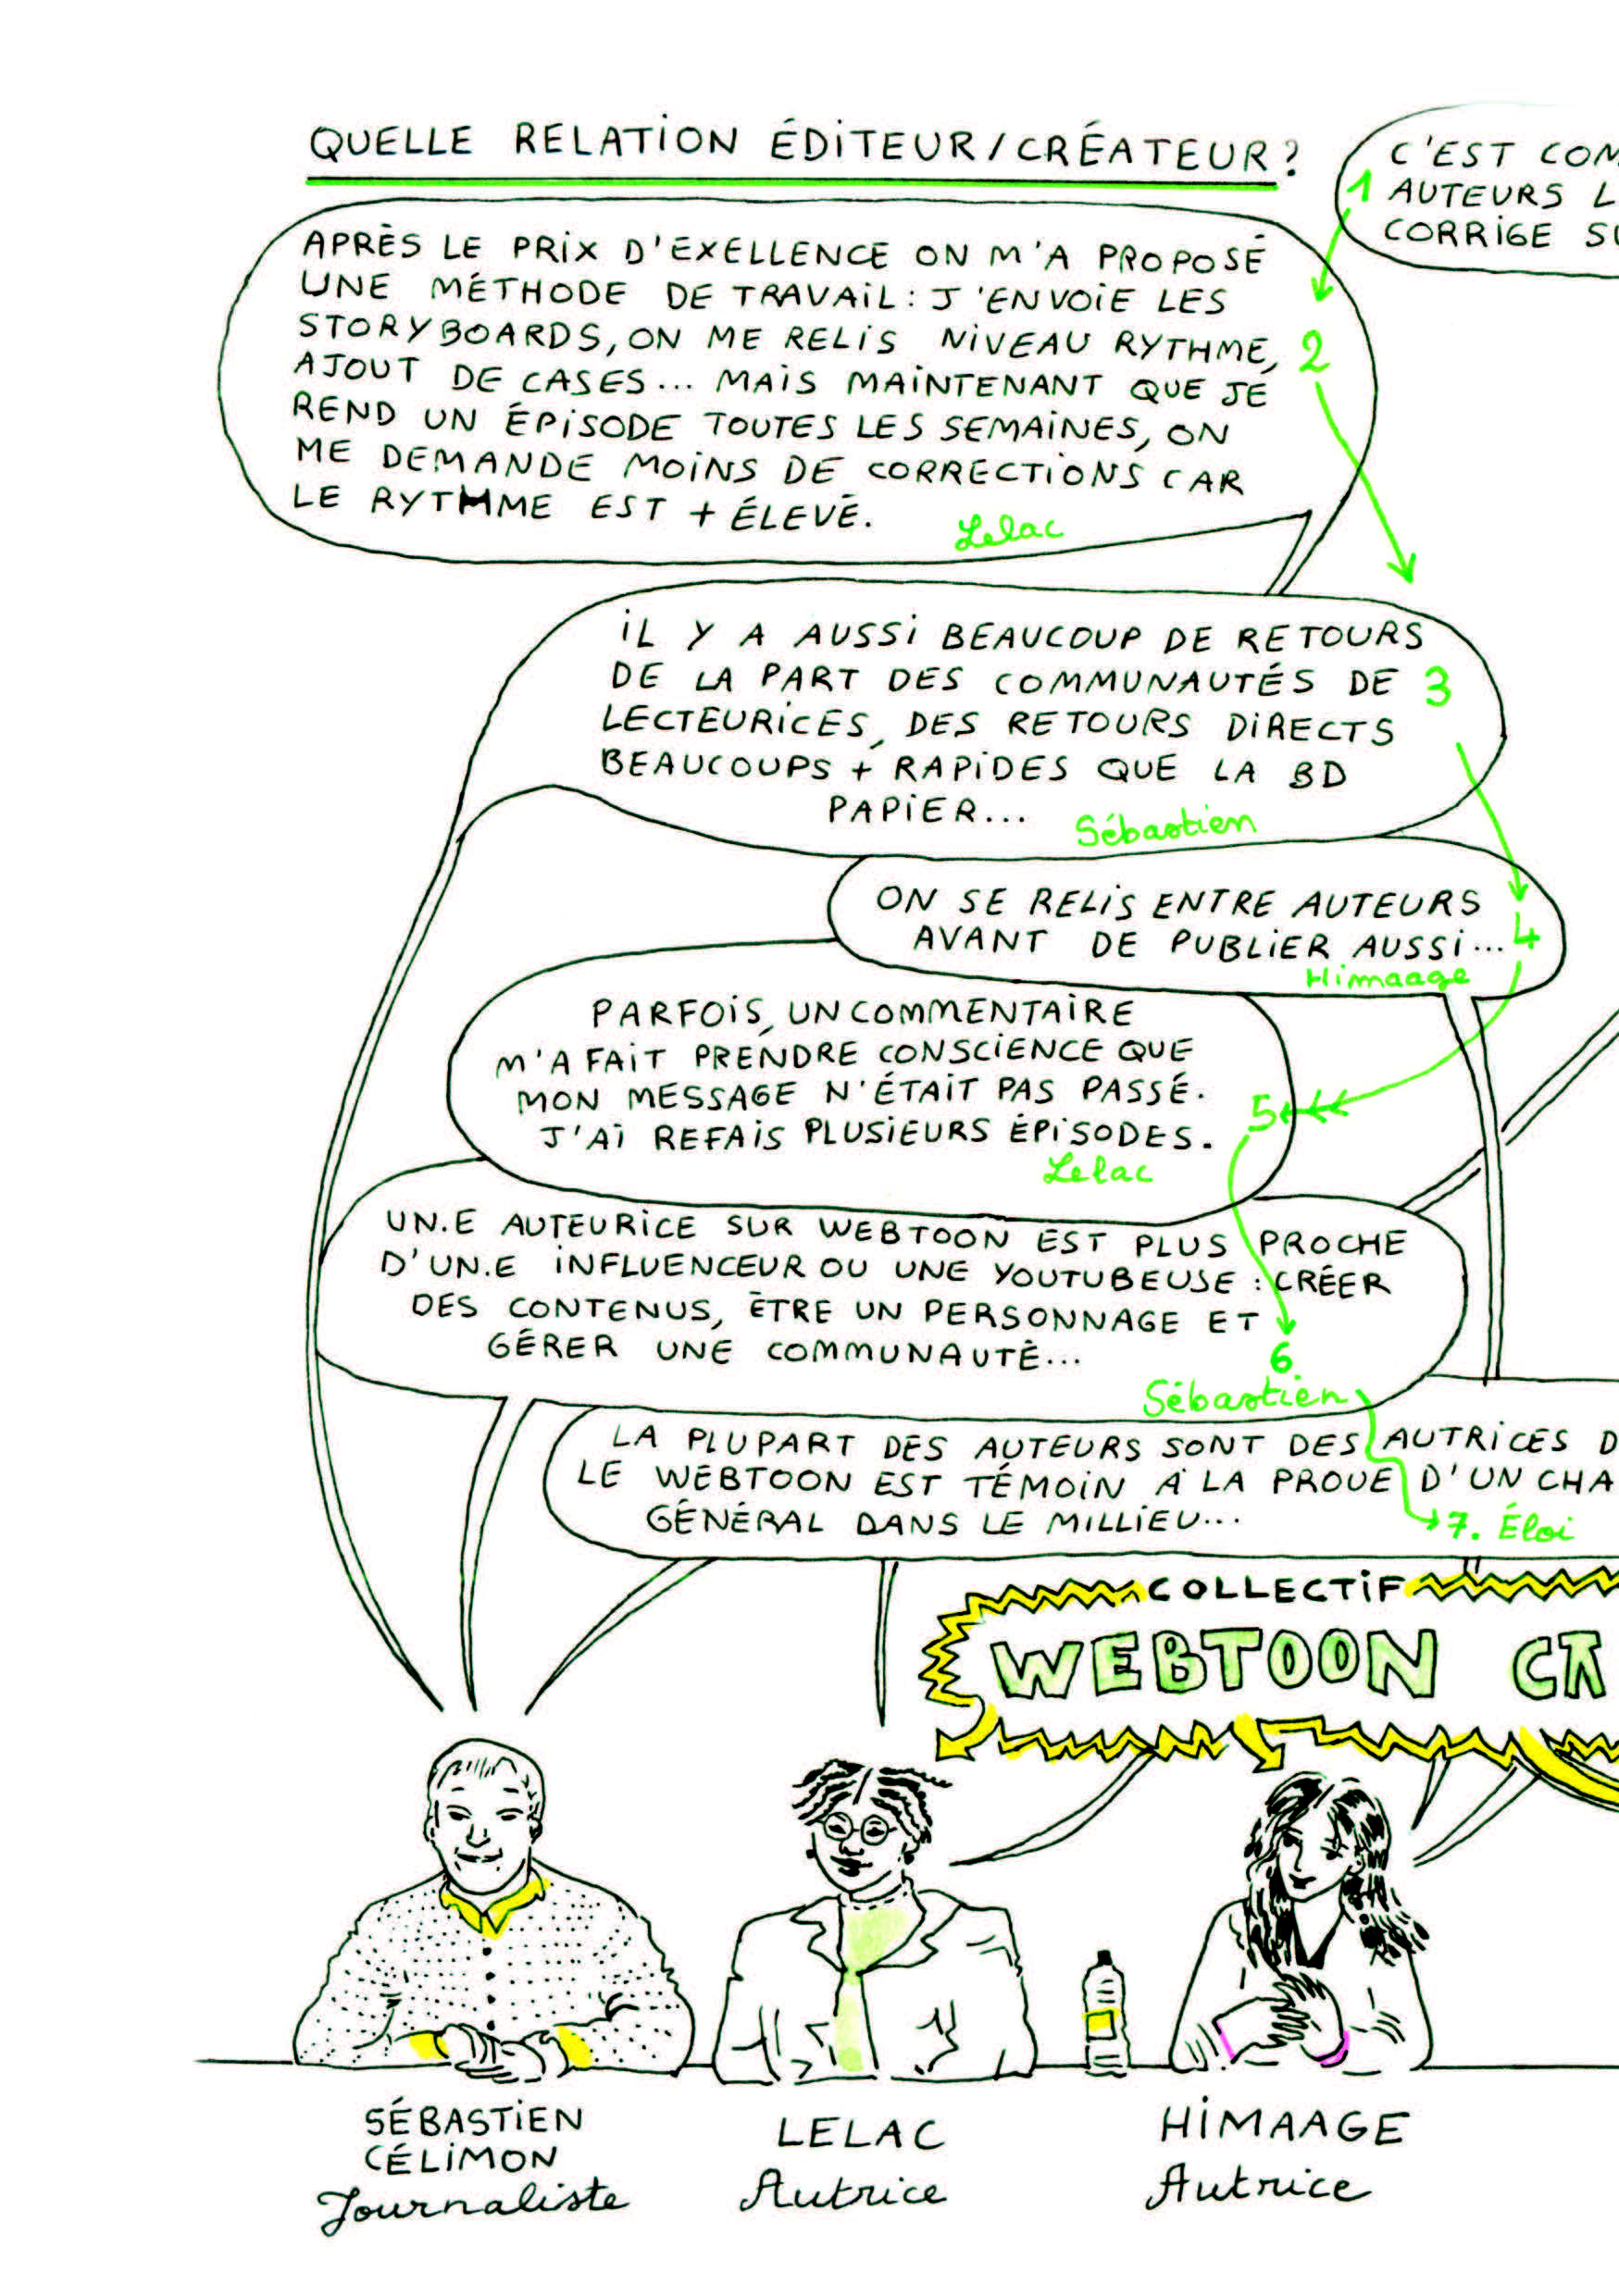 QUELLE RELATION ÉDITEUR/CRÉATEUR?
1 C'EST
AUTEURS
CORRIGE
APRÈS LE PRIX D'EXELLENCE ON M'A PROPOSÉ
UNE MÉTHODE DE TRAVAIL: J'ENVOIE LES
STORYBOARDS, ON ME RELIS NIVEAU RYTHME, 2
AJOUT DE CASES... MAIS MAINTENANT QUE JE
REND UN ÉPISODE TOUTES LES SEMAINES, ON
ME DEMANDE MOINS DE CORRECTIONS CAR
LE RYTHME EST + ÉLEVÉ.
Lelac
IL Y A AUSSI BEAUCOUP DE RETOURS
DE LA PART DES COMMUNAUTÉS DE 3
LECTEURICES, DES RETOURS DIRECTS
BEAUCOUPS + RAPIDES QUE LA BD
PAPIER...
Sébastien
ON SE RELIS ENTRE AUTEURS
AVANT DE PUBLIER AUSSI... 4
Himaage
PARFOIS, UN COMMENTAIRE
M'A FAIT PRENDRE CONSCIENCE QUE
MON MESSAGE N'ÉTAIT PAS PASSÉ.
J'AI REFAIS PLUSIEURS ÉPISODES. 5
Lelac
UN.E AUTEURICE SUR WEBTOON EST PLUS PROCHE
D'UN.E INFLUENCEUR OU UNE YOUTUBEUSE : CRÉER
DES CONTENUS, ÊTRE UN PERSONNAGE ET
GÉRER UNE COMMUNAUTÉ... 6
Sébastien
LA PLUPART DES AUTEURS SONT DES AUTRICES
LE WEBTOON EST TÉMOIN À LA PROUE D'UN
GÉNÉRAL DANS LE MILLIEU... 7. Éloi
COLLECTIF
WEBTOON
SÉBASTIEN
CÉLIMON
Journaliste
LELAC
Autrice
HIMAAGE
Autrice